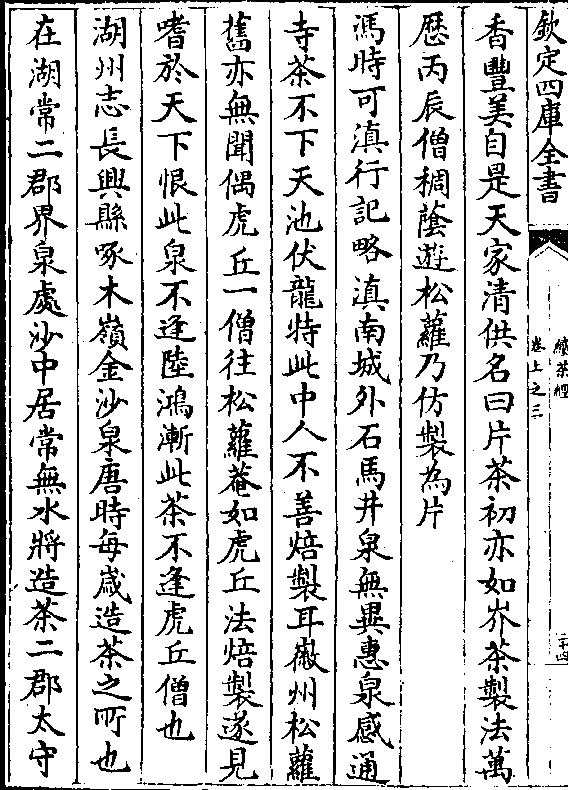 欽定四庫全書
續茶經
卷上之三
二十四
香豐美自是天家清供名曰片茶初亦如岕茶製法萬
歴丙辰僧稠䕃遊松蘿乃仿製為片
馮時可滇行記略滇南城外石馬井泉無異惠泉感通
寺茶不下天池伏龍特此中人不善焙製耳徽州松蘿
舊亦無聞偶虎丘一僧往松蘿菴如虎丘法焙製遂見
嗜於天下恨此泉不逢陸鴻漸此茶不逢虎丘僧也
湖州志長興縣啄木嶺金沙泉唐時每歲造茶之所也
在湖常二郡界泉處沙中居常無水將造茶二郡太守